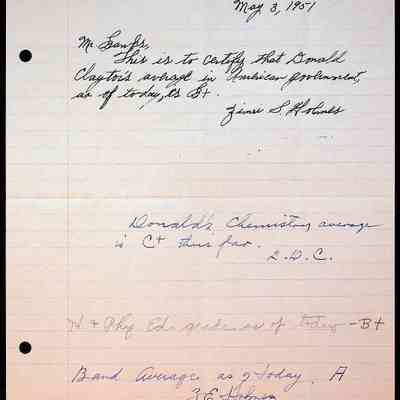 May 3, 1951
Mr.
This is to certify that Donald
Clayton's average in American government,
as of today, is B+.
S. Holmes
Donald's Chemistry average
is C+ thus far.
L.D.C.
H + Phy. Ed. grade as of today - B+
Band Average as of Today. A
Z E Holmes